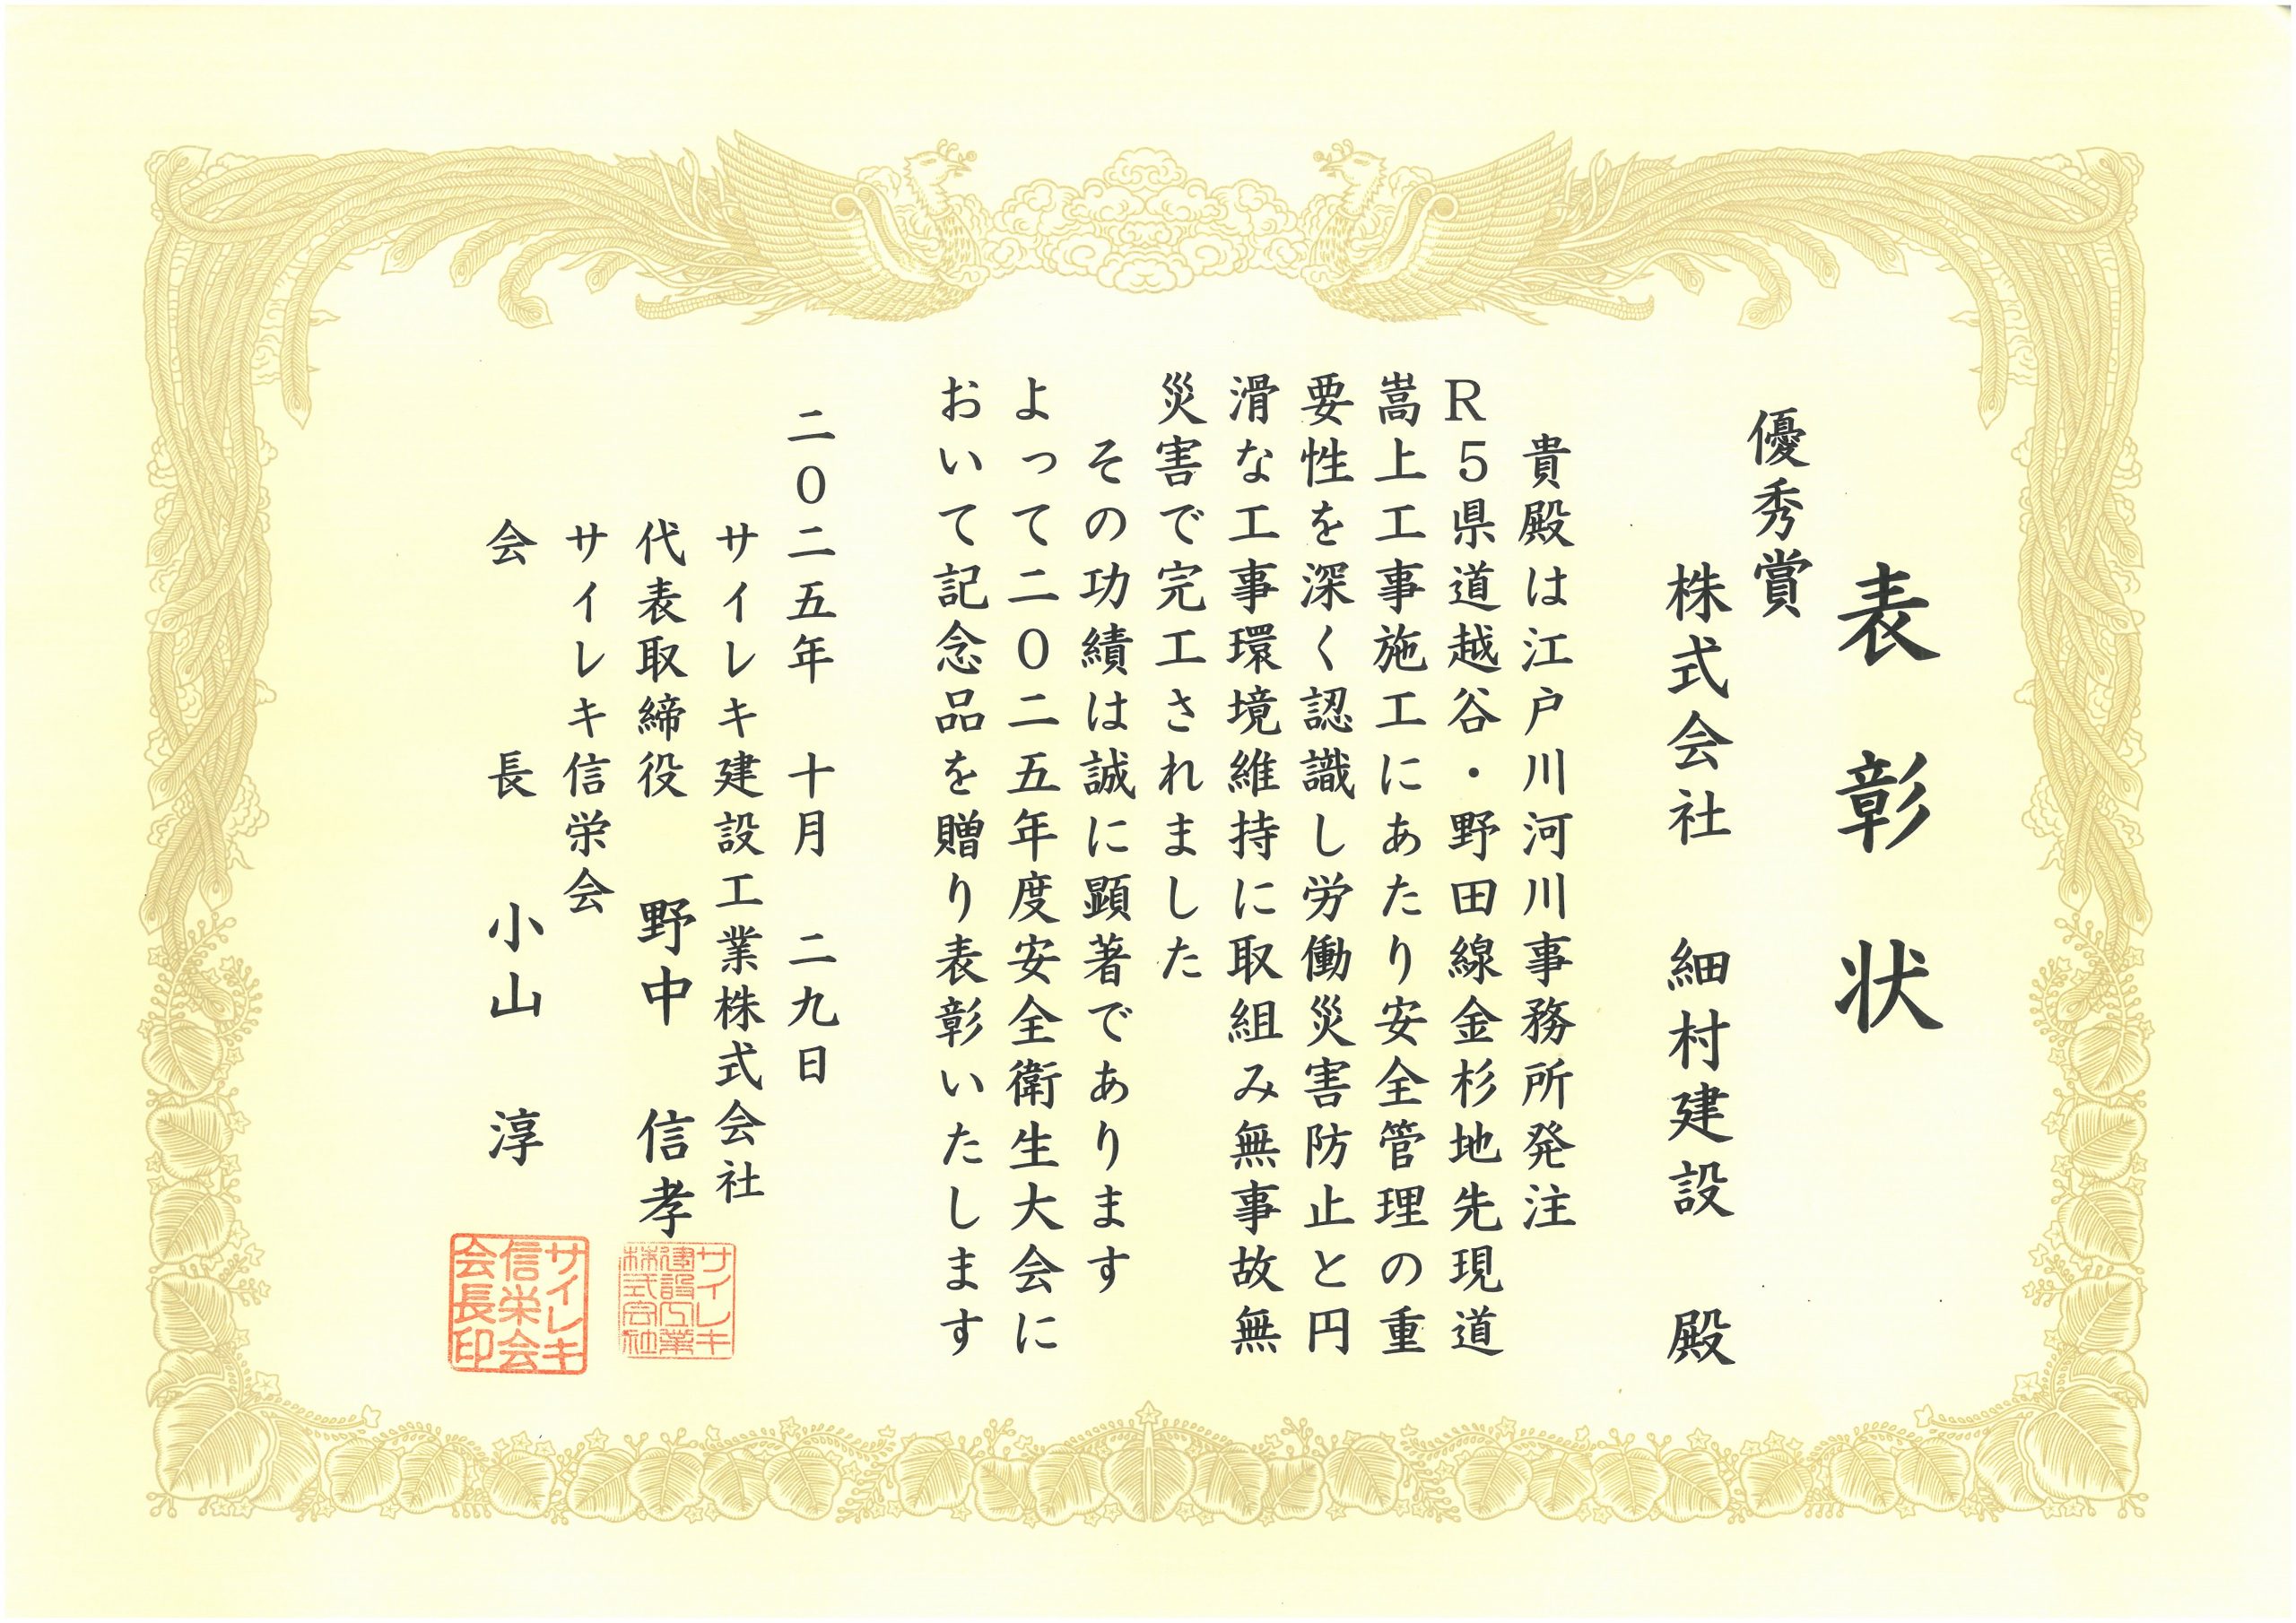 表彰状
優秀賞
株式会社 細村建設 殿
貴殿は江戸川河川事務所発注
R5県道越谷・野田線金杉地先現道
嵩上工事施工にあたり安全管理の重
要性を深く認識し労働災害防止と円
滑な工事環境維持に取組み無事故無
災害で完工されました
その功績は誠に顕著であります
よって二0二五年度安全衛生大会に
おいて記念品を贈り表彰いたします
二0二五年 十月 二九日
サイレキ建設工業株式会社
代表取締役 野中 信孝
サイレキ
建設工業
株式会社
サイレキ信栄会
会 長 小山 淳
サイレキ
信栄会
会長印